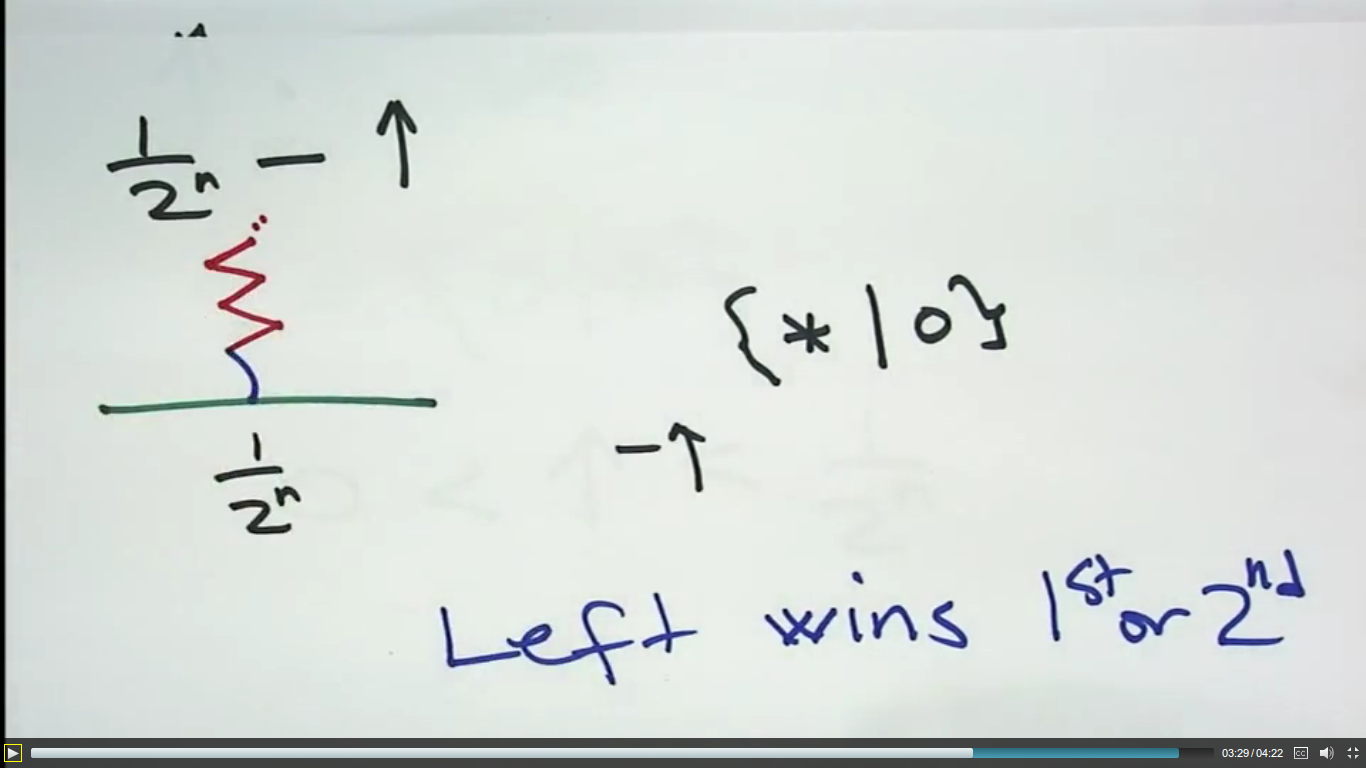 1/2ⁿ − ↑
{ * | 0 }
1/2ⁿ
−↑
Left wins 1st or 2nd
03:29/04:22
CC